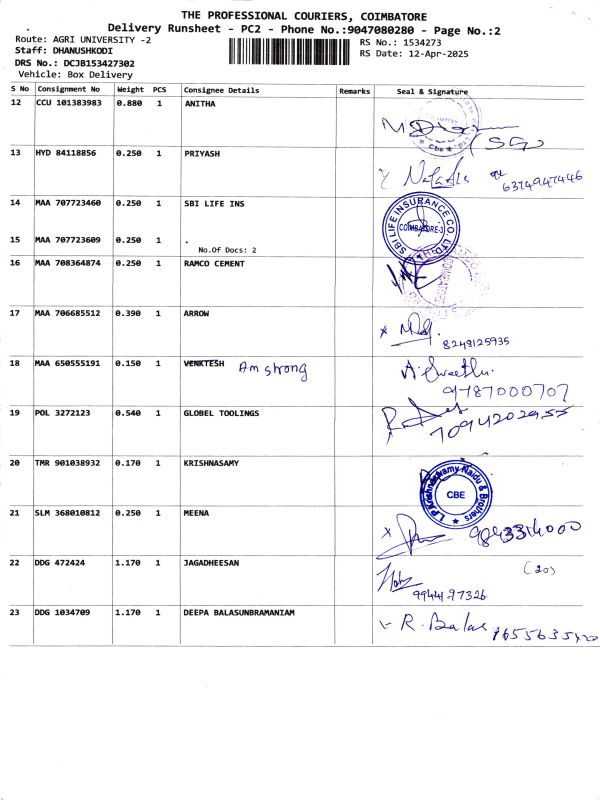 THE PROFESSIONAL COURIERS, COIMBATORE
Delivery Runsheet - PC2 - Phone No.:9047080280 - Page No.:2
Route: AGRI UNIVERSITY -2
RS No.: 1534273
Staff: DHANUSHKODI
RS Date: 12-Apr-2025
DRS No.: DCJB153427302
Vehicle: Box Delivery
S No Consignment No Weight PCS Consignee Details Remarks Seal & Signature
12 CCU 101383983 0.880 1 ANITHA
(SG)
13 HYD 84118856 0.250 1 PRIYASH
6374947446
14 MAA 707723460 0.250 1 SBI LIFE INS
SBI LIFE INSURANCE CO. LTD
COIMBATORE-3
15 MAA 707723609 0.250 1 .
No.Of Docs: 2
16 MAA 708364874 0.250 1 RAMCO CEMENT
17 MAA 706685512 0.390 1 ARROW
8248125935
18 MAA 650555191 0.150 1 VENKTESH Am strong
A. Swetha.
9787000707
19 POL 3272123 0.540 1 GLOBEL TOOLINGS
7094202955
20 TMR 901038932 0.170 1 KRISHNASAMY
Krishnaswamy Naidu & Brothers
CBE
21 SLM 368010812 0.250 1 MEENA
9843314000
22 DDG 472424 1.170 1 JAGADHEESAN
(20)
9944197326
23 DDG 1034709 1.170 1 DEEPA BALASUNBRAMANIAM
R. Balas